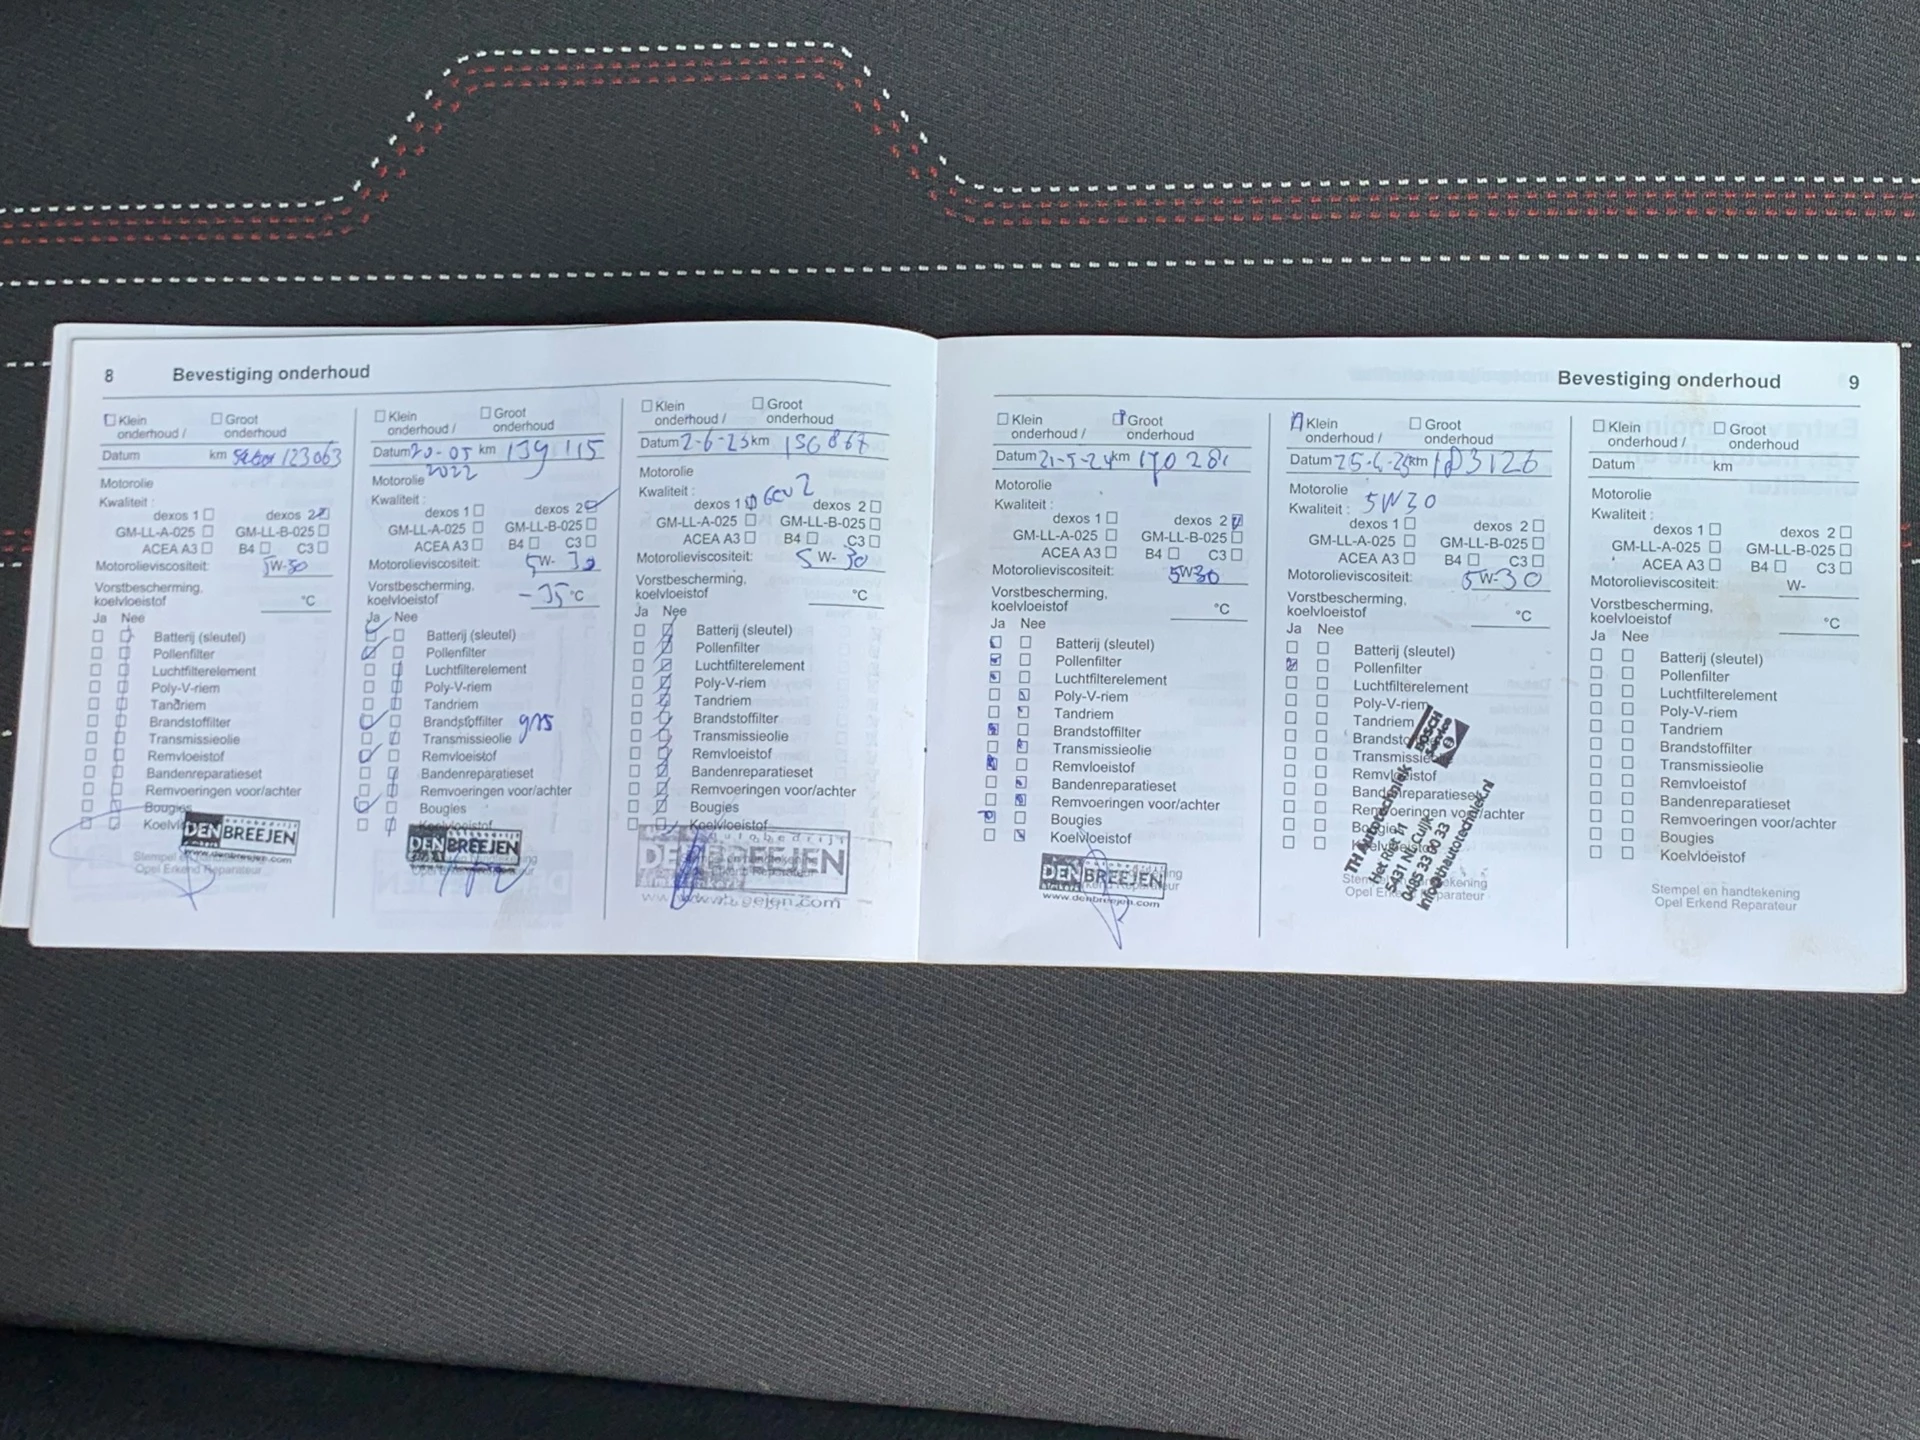 8 Bevestiging onderhoud
Klein onderhoud / Groot onderhoud
Datum km 123063
Motorolie
Kwaliteit :
dexos 1 dexos 2
GM-LL-A-025 GM-LL-B-025
ACEA A3 B4 C3
Motorolieviscositeit: 5W-30
Vorstbescherming,
koelvloeistof °C
Ja Nee
Batterij (sleutel)
Pollenfilter
Luchtfilterelement
Poly-V-riem
Tandriem
Brandstoffilter
Transmissieolie
Remvloeistof
Bandenreparatieset
Remvoeringen voor/achter
Bougies
DENBREEJEN
www.denbreejen.com
Stempel en
Opel Erkend Reparateur
Klein onderhoud / Groot onderhoud
Datum 20-05 km 139 115
2022
Motorolie
Kwaliteit :
dexos 1 dexos 2
GM-LL-A-025 GM-LL-B-025
ACEA A3 B4 C3
Motorolieviscositeit: 5W-30
Vorstbescherming,
koelvloeistof -35 °C
Ja Nee
Batterij (sleutel)
Pollenfilter
Luchtfilterelement
Poly-V-riem
Tandriem
Brandstoffilter
Transmissieolie
Remvloeistof
Bandenreparatieset
Remvoeringen voor/achter
Bougies
Koelvloeistof
DENBREEJEN
Klein onderhoud / Groot onderhoud
Datum 2-6-23 km 156867
Motorolie
Kwaliteit :
dexos 1 Gen 2 dexos 2
GM-LL-A-025 GM-LL-B-025
ACEA A3 B4 C3
Motorolieviscositeit: 5W-30
Vorstbescherming,
koelvloeistof °C
Ja Nee
Batterij (sleutel)
Pollenfilter
Luchtfilterelement
Poly-V-riem
Tandriem
Brandstoffilter
Transmissieolie
Remvloeistof
Bandenreparatieset
Remvoeringen voor/achter
Bougies
Koelvloeistof
autobedrijf
DEN BREEJEN
Bevestiging onderhoud 9
Klein onderhoud / Groot onderhoud
Datum 21-5-24 km 170281
Motorolie
Kwaliteit :
dexos 1 dexos 2
GM-LL-A-025 GM-LL-B-025
ACEA A3 B4 C3
Motorolieviscositeit: 5W30
Vorstbescherming,
koelvloeistof °C
Ja Nee
Batterij (sleutel)
Pollenfilter
Luchtfilterelement
Poly-V-riem
Tandriem
Brandstoffilter
Transmissieolie
Remvloeistof
Bandenreparatieset
Remvoeringen voor/achter
Bougies
Koelvloeistof
DENBREEJEN
www.denbreejen.com
Klein onderhoud / Groot onderhoud
Datum 25-4-25 km 183126
Motorolie
Kwaliteit : 5W30
dexos 1 dexos 2
GM-LL-A-025 GM-LL-B-025
ACEA A3 B4 C3
Motorolieviscositeit: 5W-30
Vorstbescherming,
koelvloeistof °C
Ja Nee
Batterij (sleutel)
Pollenfilter
Luchtfilterelement
Poly-V-riem
Tandriem
Transmissieolie
Remvloeistof
Bandenreparatieset
Remvoeringen voor/achter
Bougies
Koelvloeistof
BOSCH
Service
TH Autotechniek
Het Riet 11
5431 NJ Cuijk
0485 33 00 33
info@thautotechniek.nl
Klein onderhoud / Groot onderhoud
Datum km
Motorolie
Kwaliteit :
dexos 1 dexos 2
GM-LL-A-025 GM-LL-B-025
ACEA A3 B4 C3
Motorolieviscositeit: W-
Vorstbescherming,
koelvloeistof °C
Ja Nee
Batterij (sleutel)
Pollenfilter
Luchtfilterelement
Poly-V-riem
Tandriem
Brandstoffilter
Transmissieolie
Remvloeistof
Bandenreparatieset
Remvoeringen voor/achter
Bougies
Koelvloeistof
Stempel en handtekening
Opel Erkend Reparateur